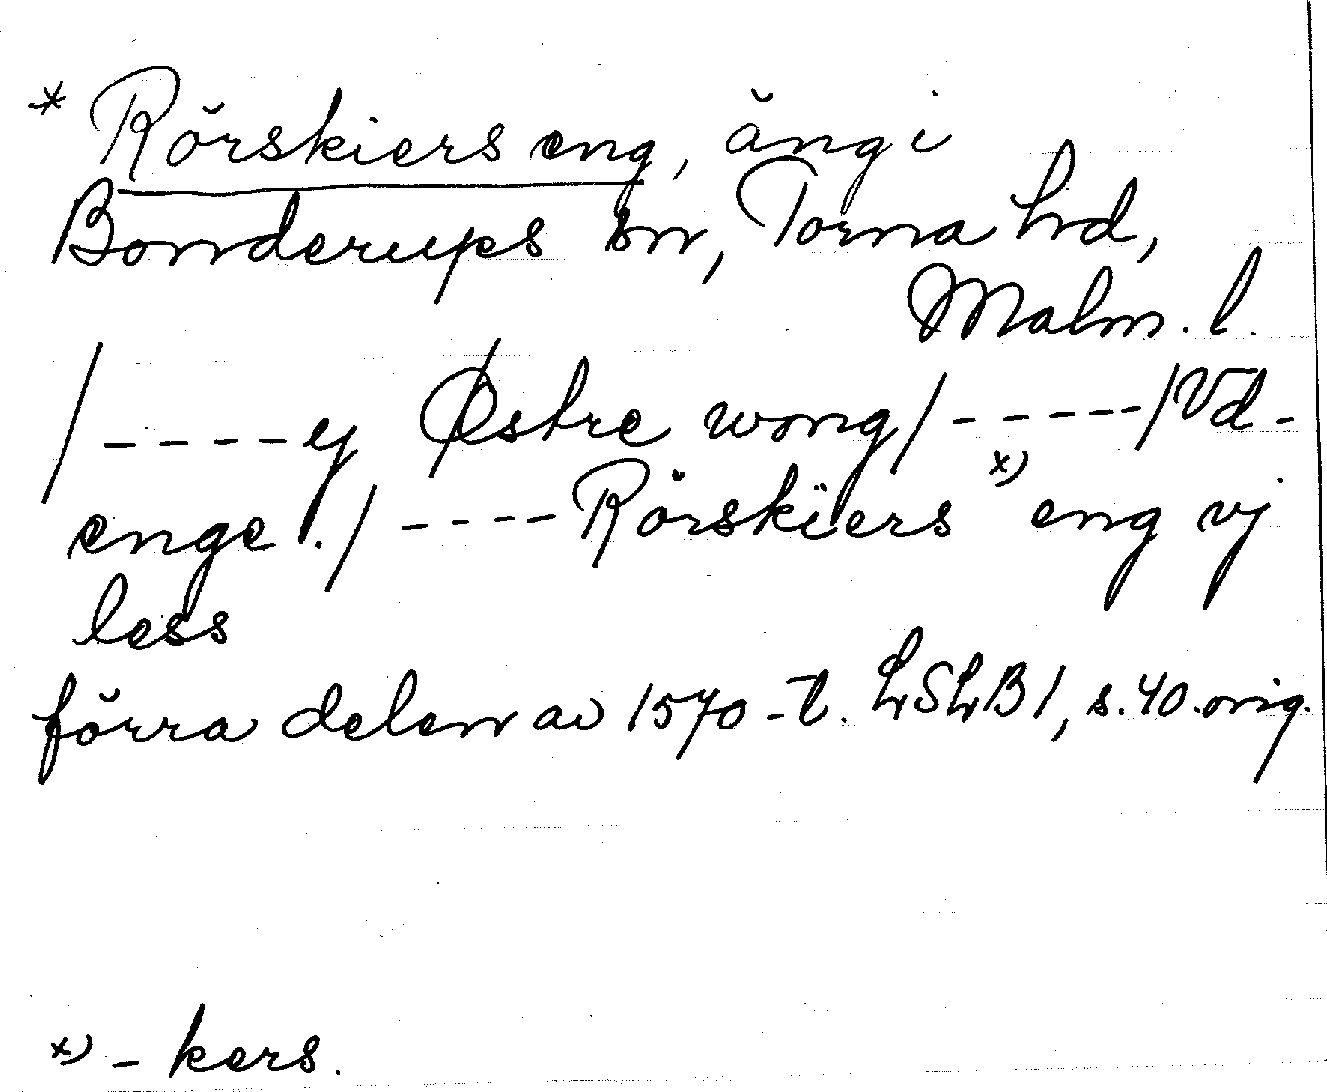 * Rörskiers eng, äng i
Bonderups sn, Torna hd,
Malm. l.
/ - - - - ej Østre wong / - - - - - / Vd-
enge ./ - - - - Rörskiers x) eng vj
less
förra delen av 1570-t. LSLB1, s. 40. orig.
x) - kers.